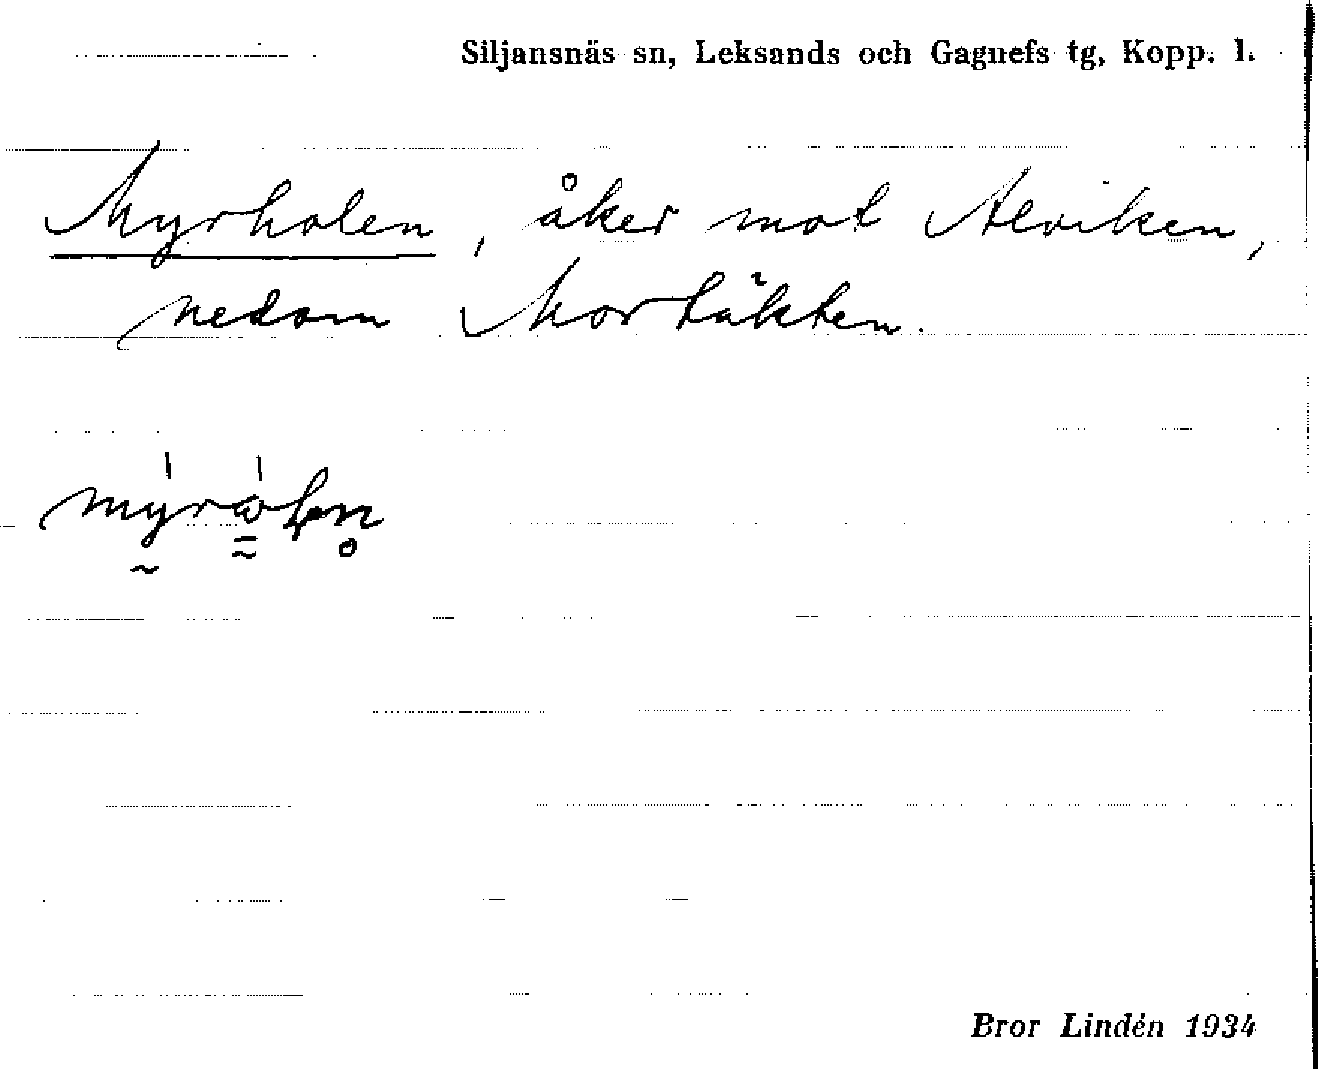 Siljansnäs sn, Leksands och Gagnefs tg, Kopp. l.
Myrholen, åker mot Alviken,
nedom Mortäkten.
Bror Lindén 1934